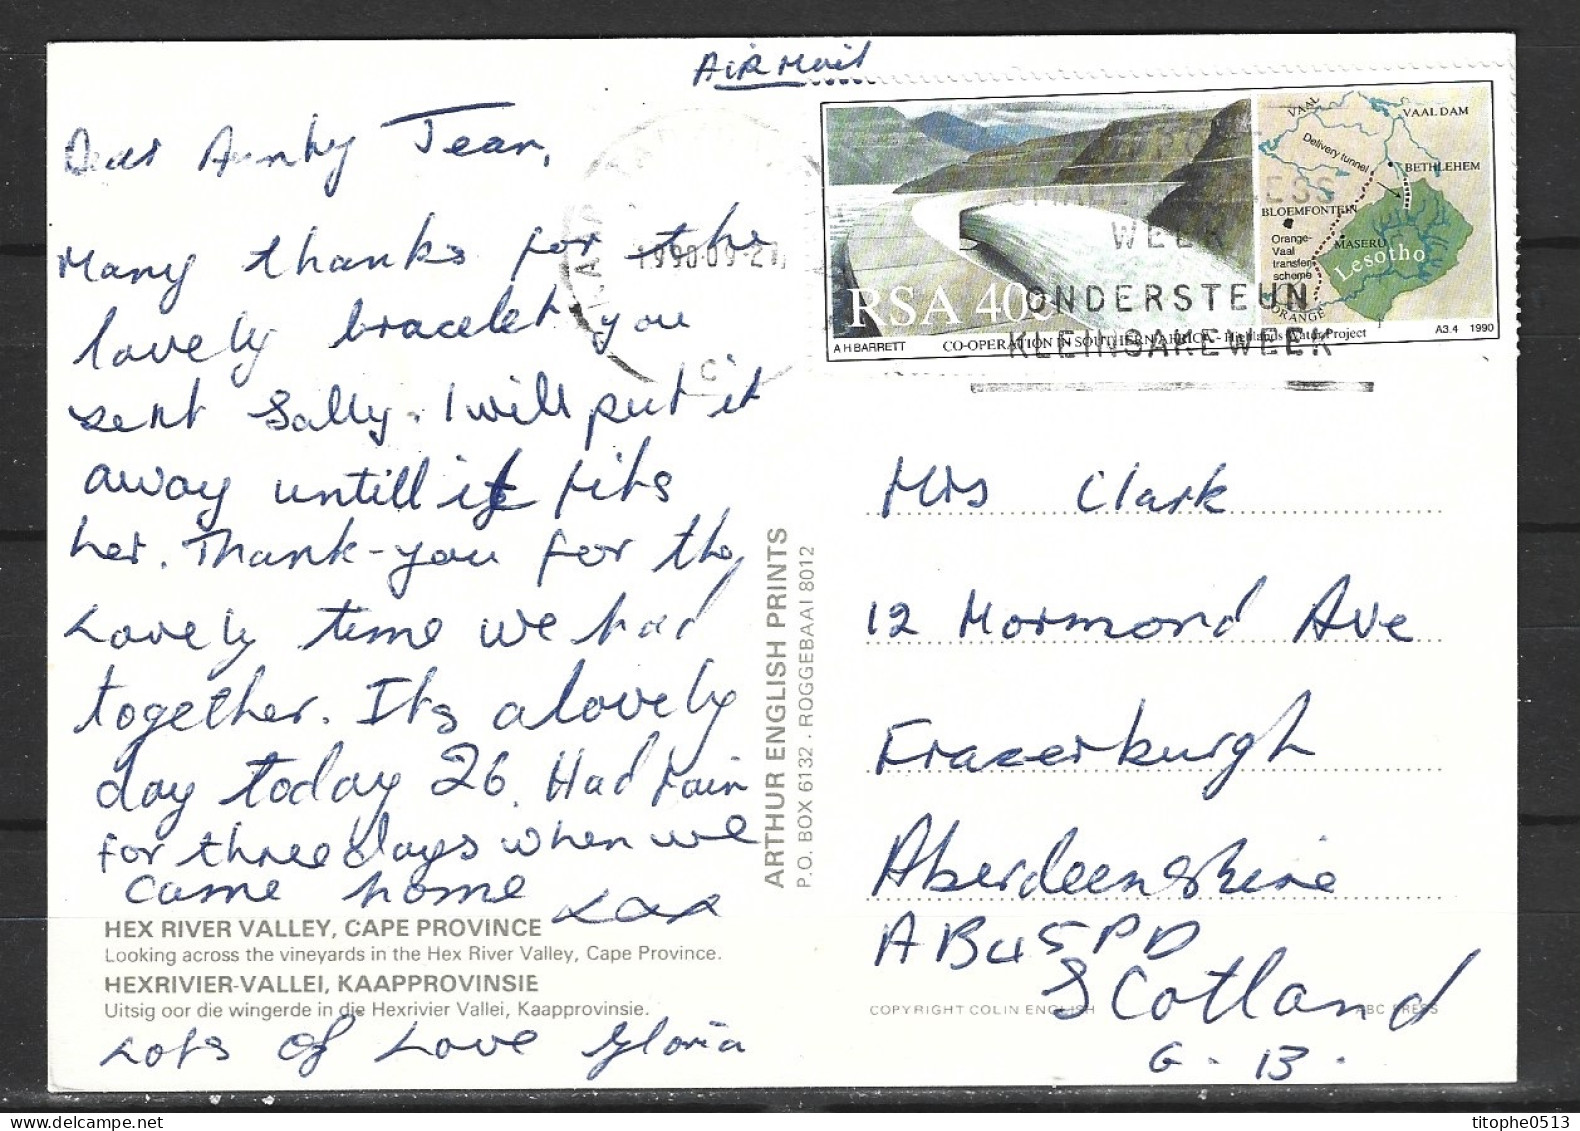 AiR Mail
Dear Aunty Jean,
Many thanks for the
lovely bracelet you
sent Sally. I will put it
away untill it fits
her. Thank-you for the
Lovely time we had
together. Its a lovely
day today 26. Had rain
for three days when we
came home xxx
HEX RIVER VALLEY, CAPE PROVINCE
Looking across the vineyards in the Hex River Valley, Cape Province.
HEXRIVIER-VALLEI, KAAPPROVINSIE
Uitsig oor die wingerde in die Hexrivier Vallei, Kaapprovinsie.
Lots of Love Gloria
ARTHUR ENGLISH PRINTS
P.O. BOX 6132 . ROGGEBAAI 8012
1990·09-2
C
WEEK
ONDERSTEUN
KLEINSAKEWEEK
RSA 40c
A H BARRETT
CO-OPERATION IN SOUTHERN AFRICA - Highlands Water Project
A3.4 1990
VAAL
VAAL DAM
Delivery tunnel
BETHLEHEM
BLOEMFONTEIN
MASERU
Orange-
Vaal
transfer
scheme
Lesotho
ORANGE
Mrs Clark
12 Mormond Ave
Frazerburgh
Aberdeenshire
AB45PD
Scotland
G. B.
COPYRIGHT COLIN ENGLISH
ABC PRESS
titophe0513